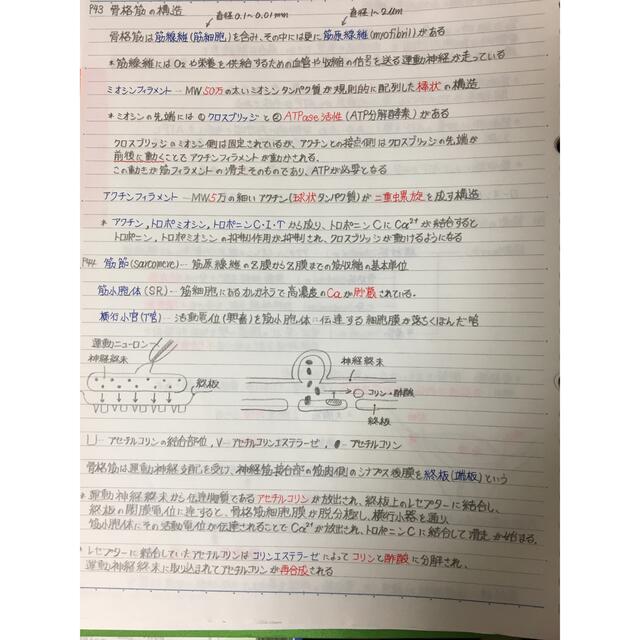 P43 骨格筋の構造
直径0.1~0.01mm
直径1~2μm
骨格筋は筋線維(筋細胞)を含み、その中には更に筋原線維(myofibril)がある
* 筋線維にはO2や栄養を供給するための血管や収縮の信号を送る運動神経が走っている
ミオシンフィラメント…MW50万の太いミオシンタンパク質が規則的に配列した棒状の構造
* ミオシンの先端には①クロスブリッジと②ATPase活性(ATP分解酵素)がある
クロスブリッジのミオシン側は固定されているが、アクチンとの接点側はクロスブリッジの先端が
前後に動くことでアクチンフィラメントが動かされる。
この動きが筋フィラメントの滑走そのものであり、ATPが必要となる
アクチンフィラメント…MW5万の細いアクチン(球状タンパク質)が二重らせんを成す構造
* アクチン,トロポミオシン,トロポニンC・I・Tから成り、トロポニンCにCa2+が結合すると
トロポニン、トロポミオシンの抑制作用が抑制され、クロスブリッジが動けるようになる
P44 筋節(sarcomere)…筋原線維のZ膜からZ膜までの筋収縮の基本単位
筋小胞体(SR)…筋細胞にあるオルガネラで高濃度のCaが貯蔵されている。
横行小管(T管)…活動電位(興奮)を筋小胞体に伝達する細胞膜が落ちくぼんだ管
運動ニューロン
神経終末
終板
神経終末
コリン・酢酸
終板
凵…アセチルコリンの結合部位, V…アセチルコリンエステラーゼ, ●…アセチルコリン
骨格筋は運動神経支配を受け、神経筋接合部の筋肉側のシナプス後膜を終板(端板)という
* 運動神経終末から伝達物質であるアセチルコリンが放出され、終板上のレセプターに結合し、
終板の閾膜電位に達すると、骨格筋細胞膜が脱分極し、横行小管を通り、
筋小胞体にその活動電位が伝達されることでCa2+が放出され、トロポニンCに結合して滑走が始まる。
* レセプターに結合していたアセチルコリンはコリンエステラーゼによってコリンと酢酸に分解され、
運動神経終末に取り込まれてアセチルコリンが再合成される